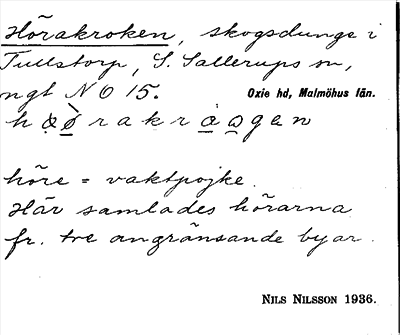 Hörakroken, skogsdunge i
Tullstorp, S. Sallerups sn,
ngt NO 15.
Oxie hd, Malmöhus län.
ho̤ø̀rakraɷgen
höre = vaktpojke.
Här samlades hörarna
fr. tre angränsande byar.
NILS NILSSON 1936.